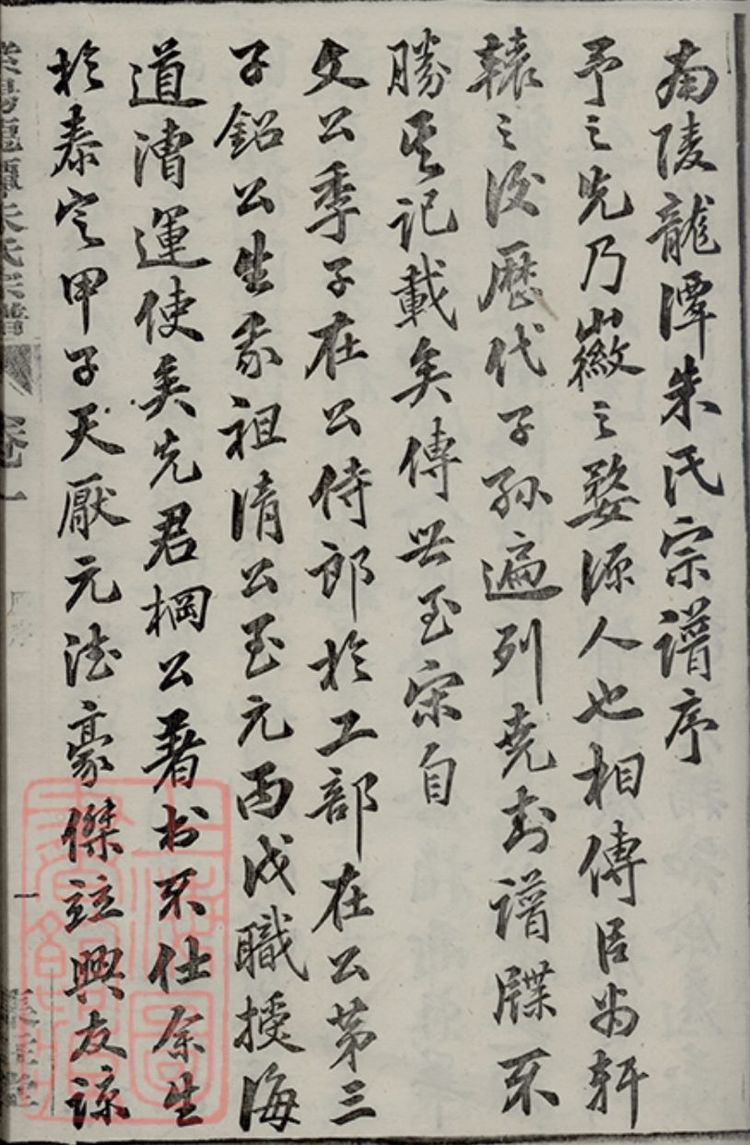 南陵龍潭朱氏宗譜序
予之先乃徽之婺源人也相傳以為軒
轅之後歷代子孫遍列堯封譜牒不
勝其記載矣傳世至宋自
文公季子在公侍郎於工部在公第三
子鉛公生我祖清公至元丙戌職授海
道漕運使矣先君棡公著書不仕余生
於泰定甲子天厭元德豪傑竝興友諒
朱氏宗譜
卷一
一